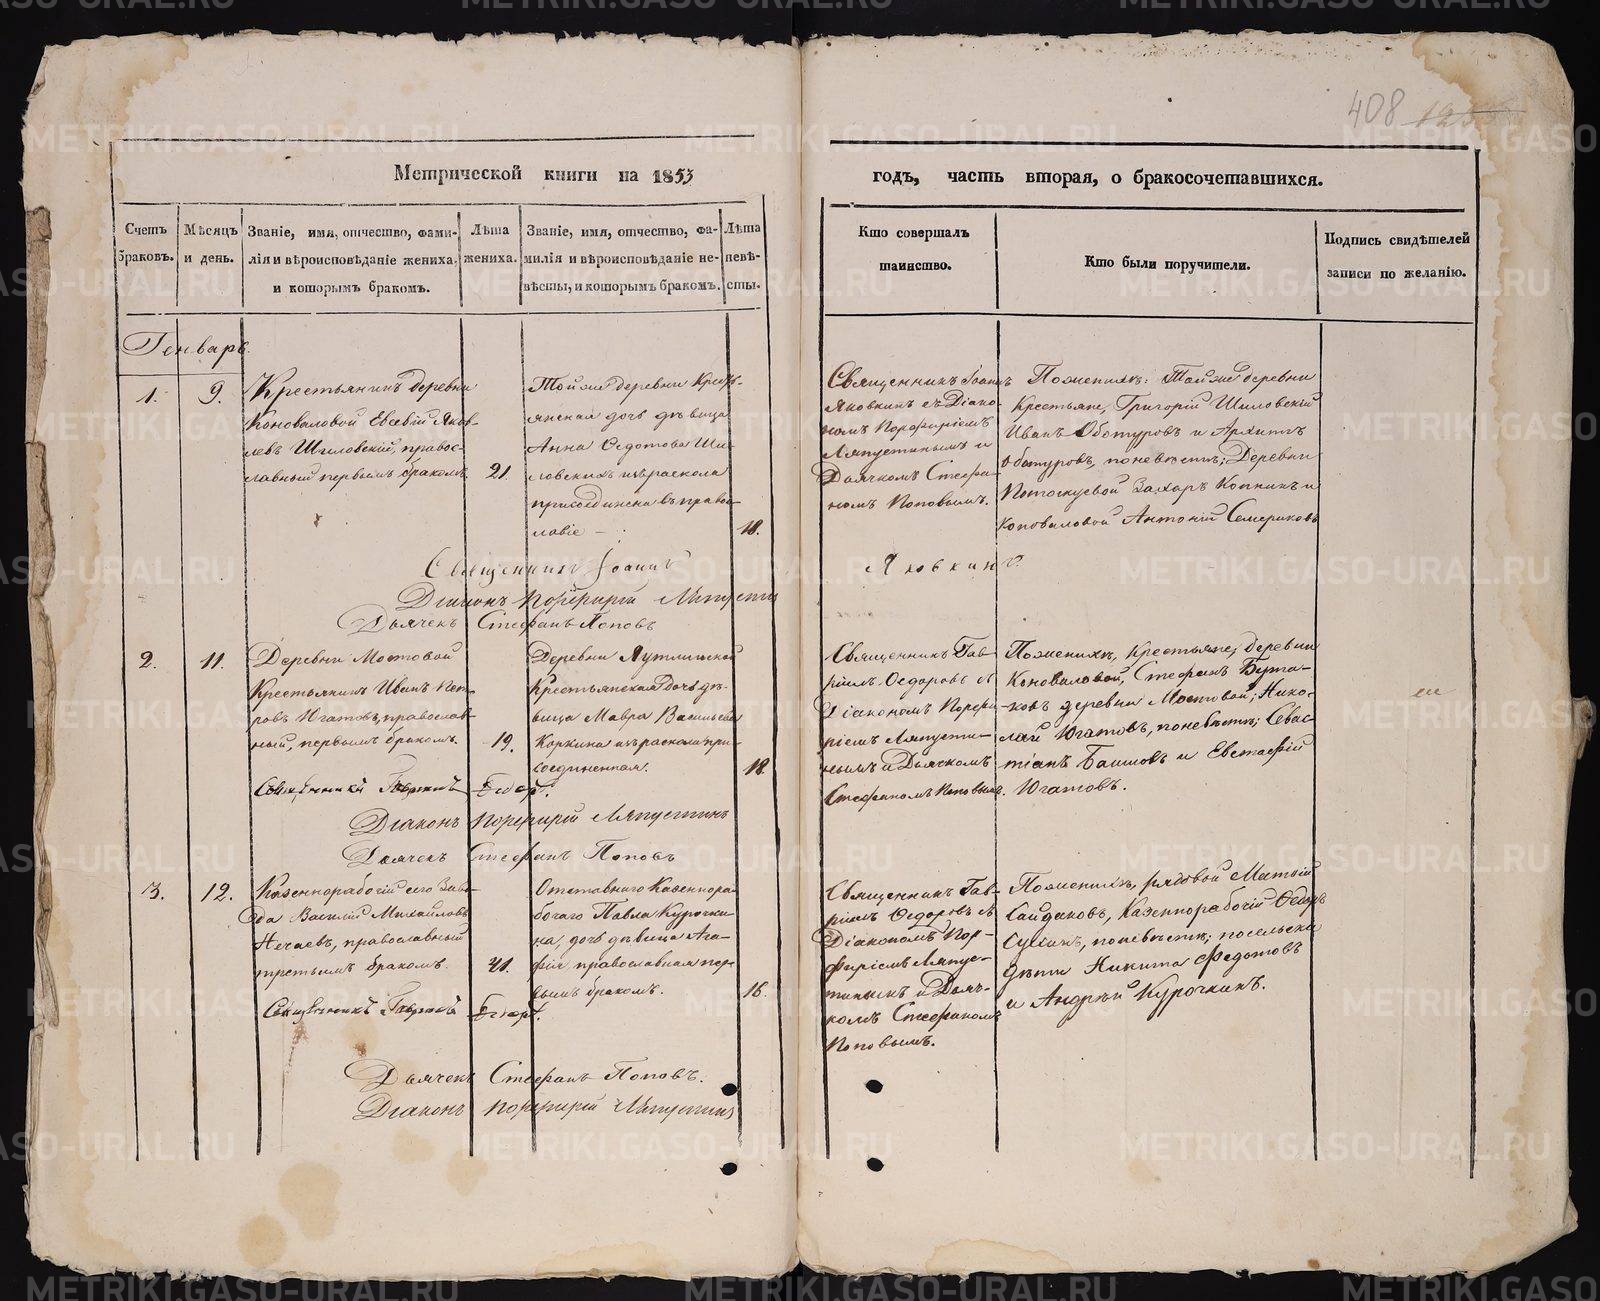 408
Метрической книги на 1853
годъ, часть вторая, о бракосочетавшихся.
Счетъ браковъ.
Мѣсяцъ и день.
Званіе, имя, отчество, фами-
лія и вѣроисповѣданіе жениха,
и которымъ бракомъ.
Лѣта
жениха.
Званіе, имя, отчество, фа-
милія и вѣроисповѣданіе не-
вѣсты, и которымъ бракомъ.
Лѣта
невѣ-
сты.
Кто совершалъ
таинство.
Кто были поручители.
Подпись свидѣтелей
записи по желанію.
Генварь.
1.
9.
Крестьянинъ деревни
Коноваловой Евсевій Яков-
левъ Шиловскій, правос-
лавный первымъ бракомъ
21.
Той же деревни Кресть-
янская дочь дѣвица
Анна Ѳедотова Ши-
ловскихъ изъ раскола
присоединена въ право-
славіе
18.
Священникъ Іоаннъ
Яковкинъ съ Діако-
номъ Порфиріемъ
Ляпустинымъ и
Дьячкомъ Стефа-
номъ Поповымъ.
По женихѣ: Той же деревни
Крестьяне, Григорій Шиловскій
Иванъ Оботуровъ и Архипъ
Обатуровъ, по невѣстѣ; Деревни
Потоскуевой Захаръ Копкикъ и
Коноваловой Антоній Семериковъ
Священникъ Іоаннъ
Яковкинъ
Діаконъ Порфирій Ляпустин
Дьячекъ Стефанъ Поповъ
2.
11.
Деревни Мостовой
Крестьянинъ Иванъ Пет-
ровъ Югатовъ, православ-
ный, первымъ бракомъ.
19.
Деревни
Крестьянская дочь дѣ-
вица Мавра Васильева
Коркина изъ раскола при-
соединенная.
18.
Священникъ Гав-
ріилъ Ѳедоровъ съ
Діакономъ Порфи-
ріемъ Ляпусти-
нымъ и Дьячкомъ
Стефаномъ Поповымъ.
По женихѣ, Крестьяне, деревни
Коноваловой, Стефанъ Бута-
ковъ деревни Мостовой; Нико-
лай Югатовъ, по невѣстѣ; Севас-
тіанъ и Евстафій
Югатовъ.
Священникъ Гавріилъ Ѳедор.
Діаконъ Порфирій Ляпустинъ
Дьячекъ Стефанъ Поповъ
3.
12.
Казеннорабочій сего Заво-
да Василій Михайловъ
Нечаевъ, православный
третьимъ бракомъ.
41.
Отставнаго Казеннора-
бочаго Павла Курочки-
на, дочь дѣвица Ага-
фія православная пер-
вымъ бракомъ.
16.
Священникъ Гав-
ріилъ Ѳедоровъ съ
Діакономъ Пор-
фиріемъ Ляпус-
тинымъ и Дьяч-
комъ Стефаномъ
Поповымъ.
По женихѣ, рядовой Матвій
Сайдаковъ, Казеннорабочій Ѳедоръ
по невѣстѣ; посельски
дѣти Никита Федотовъ
и Андрей Курочкинъ.
Священникъ Гавріилъ Ѳедор.
Дьячекъ Стефанъ Поповъ.
Діаконъ Порфирій Ляпустинъ
METRIKI.GASO-URAL.RU